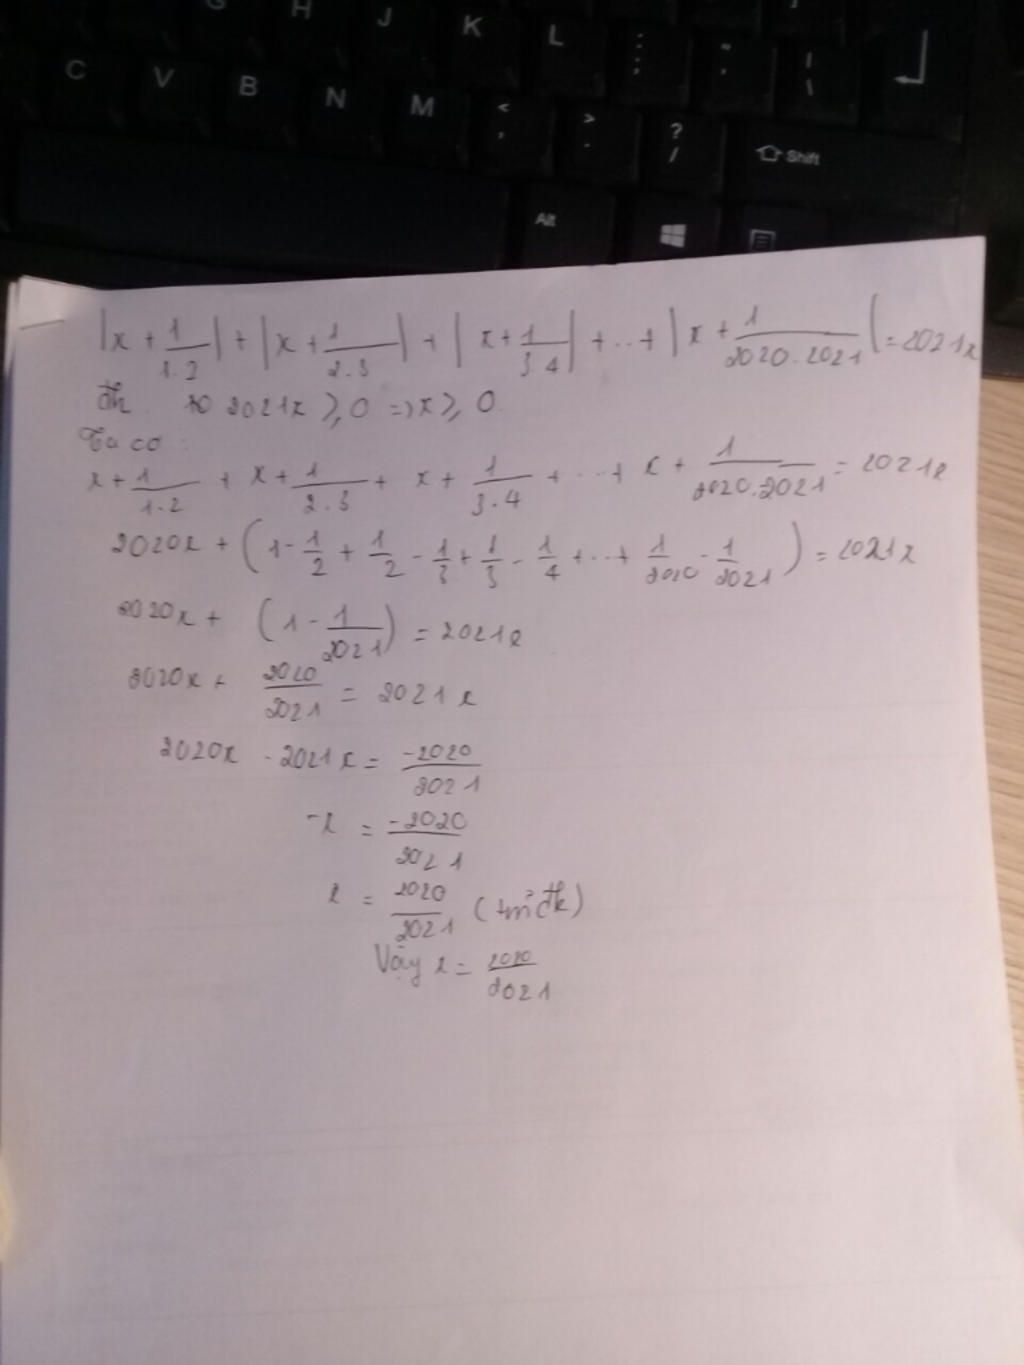 G H J K L : ; " ' | \
C V B N M < , > . ? / Shift
Alt
|x + 1/1.2| + |x + 1/2.3| + |x + 1/3.4| + ... + |x + 1/2020.2021| = 2021x
đk 2021x ≥ 0 => x ≥ 0
Ta có :
x + 1/1.2 + x + 1/2.3 + x + 1/3.4 + ... + x + 1/2020.2021 = 2021x
2020x + (1 - 1/2 + 1/2 - 1/3 + 1/3 - 1/4 + ... + 1/2020 - 1/2021) = 2021x
2020x + (1 - 1/2021) = 2021x
2020x + 2020/2021 = 2021x
2020x - 2021x = -2020/2021
-x = -2020/2021
x = 2020/2021 (tm đk)
Vậy x = 2020/2021